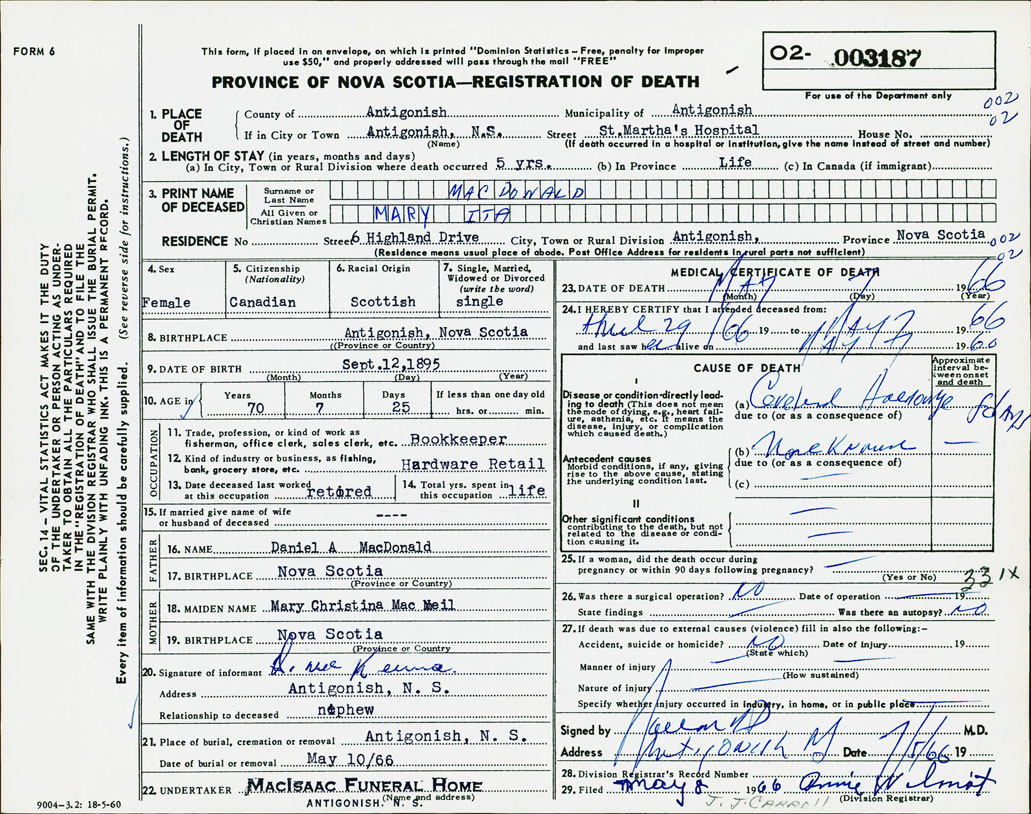 FORM 6
This form, if placed in an envelope, on which is printed "Dominion Statistics – Free, penalty for improper
use $50," and properly addressed will pass through the mail "FREE"
PROVINCE OF NOVA SCOTIA—REGISTRATION OF DEATH
O2- 003187
For use of the Department only
002
02
1. PLACE OF DEATH
County of Antigonish Municipality of Antigonish
If in City or Town Antigonish, N.S. Street St.Martha's Hospital House No.
(Name) (If death occurred in a hospital or institution, give the name instead of street and number)
2. LENGTH OF STAY (in years, months and days)
(a) In City, Town or Rural Division where death occurred 5 yrs. (b) In Province Life (c) In Canada (if immigrant)
3. PRINT NAME OF DECEASED
Surname or Last Name MACDONALD
All Given or Christian Names MARY ITA
RESIDENCE No Street 6 Highland Drive City, Town or Rural Division Antigonish, Province Nova Scotia
002
02
(Residence means usual place of abode. Post Office Address for residents in rural parts not sufficient)
4. Sex
Female
5. Citizenship
(Nationality)
Canadian
6. Racial Origin
Scottish
7. Single, Married,
Widowed or Divorced
(write the word)
single
8. BIRTHPLACE Antigonish, Nova Scotia
(Province or Country)
9. DATE OF BIRTH Sept.12,1895
(Month) (Day) (Year)
10. AGE in
Years 70
Months 7
Days 25
If less than one day old
hrs. or min.
OCCUPATION
11. Trade, profession, or kind of work as
fisherman, office clerk, sales clerk, etc. Bookkeeper
12. Kind of industry or business, as fishing,
bank, grocery store, etc. Hardware Retail
13. Date deceased last worked
at this occupation retired
14. Total yrs. spent in
this occupation life
15. If married give name of wife
or husband of deceased ----
FATHER
16. NAME Daniel A MacDonald
17. BIRTHPLACE Nova Scotia
(Province or Country)
MOTHER
18. MAIDEN NAME Mary Christina Mac Neil
19. BIRTHPLACE Nova Scotia
(Province or Country)
20. Signature of informant
Address Antigonish, N. S.
Relationship to deceased nephew
21. Place of burial, cremation or removal Antigonish, N. S.
Date of burial or removal May 10/66
22. UNDERTAKER MacIsaac Funeral Home
(Name and address)
ANTIGONISH. N. S.
9004-3.2: 18-5-60
MEDICAL CERTIFICATE OF DEATH
23. DATE OF DEATH MAY 7 1966
(Month) (Day) (Year)
24. I HEREBY CERTIFY that I attended deceased from:
April 29 /66 19 to MAY 7 1966
and last saw her alive on MAY 7 1966
CAUSE OF DEATH
Approximate
interval be-
tween onset
and death
I
Disease or condition directly lead-
ing to death (This does not mean
the mode of dying, e.g., heart fail-
ure, asthenia, etc. It means the
disease, injury, or complication
which caused death.)
(a) Cerebral days
due to (or as a consequence of)
Antecedent causes
Morbid conditions, if any, giving
rise to the above cause, stating
the underlying condition last.
(b) None Known —
due to (or as a consequence of)
(c) —
II
Other significant conditions
contributing to the death, but not
related to the disease or condi-
tion causing it.
25. If a woman, did the death occur during
pregnancy or within 90 days following pregnancy? —
(Yes or No)
331X
26. Was there a surgical operation? NO Date of operation 19
State findings — Was there an autopsy? NO
27. If death was due to external causes (violence) fill in also the following:–
Accident, suicide or homicide? NO Date of injury 19
(State which)
Manner of injury
(How sustained)
Nature of injury
Specify whether injury occurred in industry, in home, or in public place
Signed by M.D.
Address Antigonish Date 7/5/66 19
28. Division Registrar's Record Number
29. Filed May 8 1966 Annie Wilmot
(Division Registrar)
J. J. CARROLL
SEC. 14 – VITAL STATISTICS ACT MAKES IT THE DUTY
OF THE UNDERTAKER OR PERSON ACTING AS UNDER-
TAKER TO OBTAIN ALL THE PARTICULARS REQUIRED
IN THE "REGISTRATION OF DEATH" AND TO FILE THE
SAME WITH THE DIVISION REGISTRAR WHO SHALL ISSUE THE BURIAL PERMIT.
WRITE PLAINLY WITH UNFADING INK. THIS IS A PERMANENT RECORD.
Every item of information should be carefully supplied. (See reverse side for instructions.)